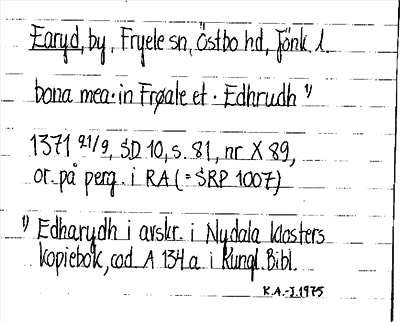 Earyd, by, Fryele sn, Östbo hd, Jönk. l.
bona mea · in Frøale et · Edhrudh ¹⁾
1371 21/9, SD 10, s. 81, nr X 89,
or. på perg. i RA (= SRP 1007)
¹⁾ Edharydh i avskr. i Nydala klosters
kopiebok, cod A 134 a i Kungl. Bibl.
K.A.-J. 1975